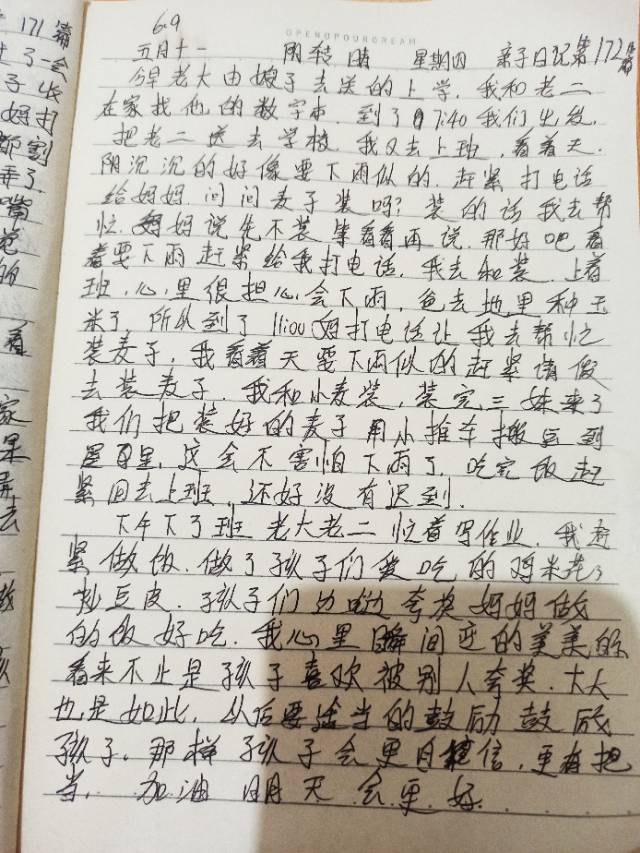 171篇
6.9
OPENUPOURDREAM
五月十一 阴转晴 星期四 亲子日记第172篇
今早老大由嫂子去送的上学,我和老二
在家找他的数字本,到了7:40我们出发,
把老二送去学校,我又去上班,看着天,
阴沉沉的好像要下雨似的,赶紧打电话
给妈妈,问问麦子装吗?装的话我去帮
忙,妈妈说先不装,等看看再说,那好吧看
着要下雨赶紧给我打电话,我去和装,上着
班,心里很担心会下雨,爸去地里种玉
米了,所以到了11:00妈打电话让我去帮忙
装麦子,我看着天要下雨似的赶紧请假
去装麦子,我和小麦装,装完三妹来了
我们把装好的麦子用小推车搬运到
屋里,这会不害怕下雨了,吃完饭赶
紧回去上班,还好没有迟到.
下午下了班老大老二忙着写作业,我赶
紧做饭,做了孩子们爱吃的鸡米花,
炒豆皮,孩子们边吃边夸奖妈妈做
的饭好吃,我心里瞬间的美美的
看来不止是孩子喜欢被别人夸奖,大人
也是如此,以后要适当的鼓励鼓励
孩子,那样孩子会更自信,更有把
当, 加油 明天会更好